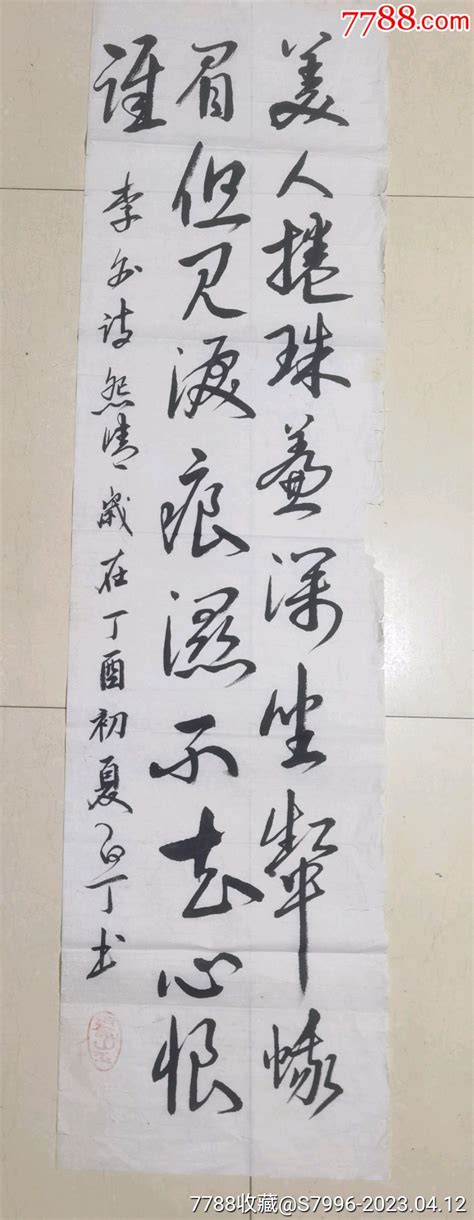 7788.com
美人捲珠簾深坐顰蛾
眉但見淚痕濕不知心恨
誰 李白詩怨情 歲在丁酉初夏 白丁書
7788收藏@S7996-2023.04.12